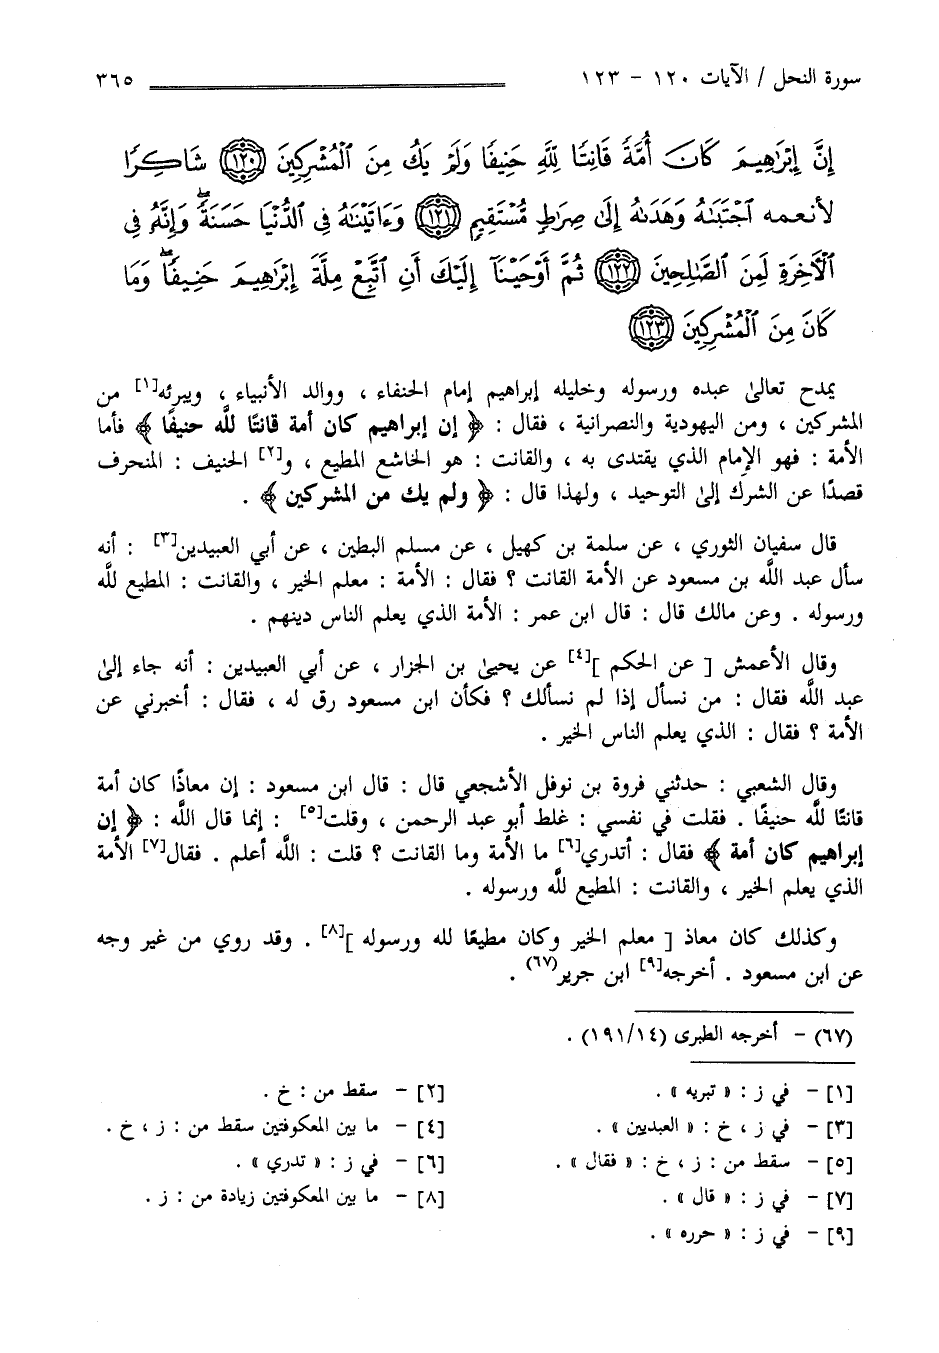 سورة النحل / الآيات ١٢٠ - ١٢٣ ٣٦٥
إِنَّ إِبْرَٰهِيمَ كَانَ أُمَّةً قَانِتًا لِّلَّهِ حَنِيفًا وَلَمْ يَكُ مِنَ ٱلْمُشْرِكِينَ ١٢٠ شَاكِرًا
لأنعمه ٱجْتَبَىٰهُ وَهَدَىٰهُ إِلَىٰ صِرَٰطٍ مُّسْتَقِيمٍ ١٢١ وَءَاتَيْنَٰهُ فِى ٱلدُّنْيَا حَسَنَةً ۖ وَإِنَّهُۥ فِى
ٱلْءَاخِرَةِ لَمِنَ ٱلصَّٰلِحِينَ ١٢٢ ثُمَّ أَوْحَيْنَآ إِلَيْكَ أَنِ ٱتَّبِعْ مِلَّةَ إِبْرَٰهِيمَ حَنِيفًا ۖ وَمَا
كَانَ مِنَ ٱلْمُشْرِكِينَ ١٢٣
يمدح تعالىٰ عبده ورسوله وخليله إبراهيم إمام الحنفاء ، ووالد الأنبياء ، ويبرئه[١] من
المشركين ، ومن اليهودية والنصرانية ، فقال : ﴿ إن إبراهيم كان أمة قانتًا للَّه حنيفًا ﴾ فأما
الأمة : فهو الإمام الذي يقتدى به ، والقانت : هو الخاشع المطيع ، و[٢] الحنيف : المنحرف
قصدًا عن الشرك إلىٰ التوحيد ، ولهذا قال : ﴿ ولم يك من المشركين ﴾ .
قال سفيان الثوري ، عن سلمة بن كهيل ، عن مسلم البطين ، عن أبي العبيدين[٣] : أنه
سأل عبد اللَّه بن مسعود عن الأمة القانت ؟ فقال : الأمة : معلم الخير ، والقانت : المطيع للَّه
ورسوله . وعن مالك قال : قال ابن عمر : الأمة الذي يعلم الناس دينهم .
وقال الأعمش [ عن الحكم ][٤] عن يحيىٰ بن الجزار ، عن أبي العبيدين : أنه جاء إلىٰ
عبد اللَّه فقال : من نسأل إذا لم نسألك ؟ فكأن ابن مسعود رق له ، فقال : أخبرني عن
الأمة ؟ فقال : الذي يعلم الناس الخير .
وقال الشعبي : حدثني فروة بن نوفل الأشجعي قال : قال ابن مسعود : إن معاذًا كان أمة
قانتًا للَّه حنيفًا . فقلت في نفسي : غلط أبو عبد الرحمن ، وقلت[٥] : إنما قال اللَّه : ﴿ إن
إبراهيم كان أمة ﴾ فقال : أتدري[٦] ما الأمة وما القانت ؟ قلت : اللَّه أعلم . فقال[٧] الأمة
الذي يعلم الخير ، والقانت : المطيع للَّه ورسوله .
وكذلك كان معاذ [ معلم الخير وكان مطيعًا لله ورسوله ][٨] . وقد روي من غير وجه
عن ابن مسعود . أخرجه[٩] ابن جرير(٦٧) .
(٦٧) - أخرجه الطبرى (١٩١/١٤) .
[١] - في ز : « تبريه » . [٢] - سقط من : خ .
[٣] - في ز ، خ : « العبديين » . [٤] - ما بين المعكوفتين سقط من : ز ، خ .
[٥] - سقط من : ز ، خ : « فقال » . [٦] - في ز : « تدري » .
[٧] - في ز : « قال » . [٨] - ما بين المعكوفتين زيادة من : ز .
[٩] - في ز : « حرره » .